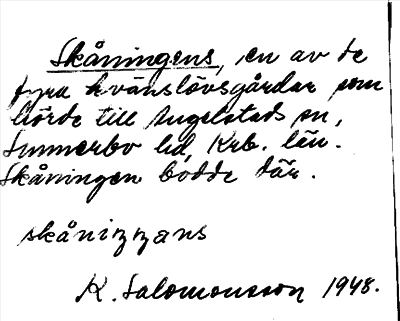 Skåningens, en av de
fyra kvänslövsgårdar som
hörde till Angelstads sn,
Sunnerbo hd, Krb. län.
Skåningen bodde där.
skåniŋŋans
K. Salomonsson 1948.